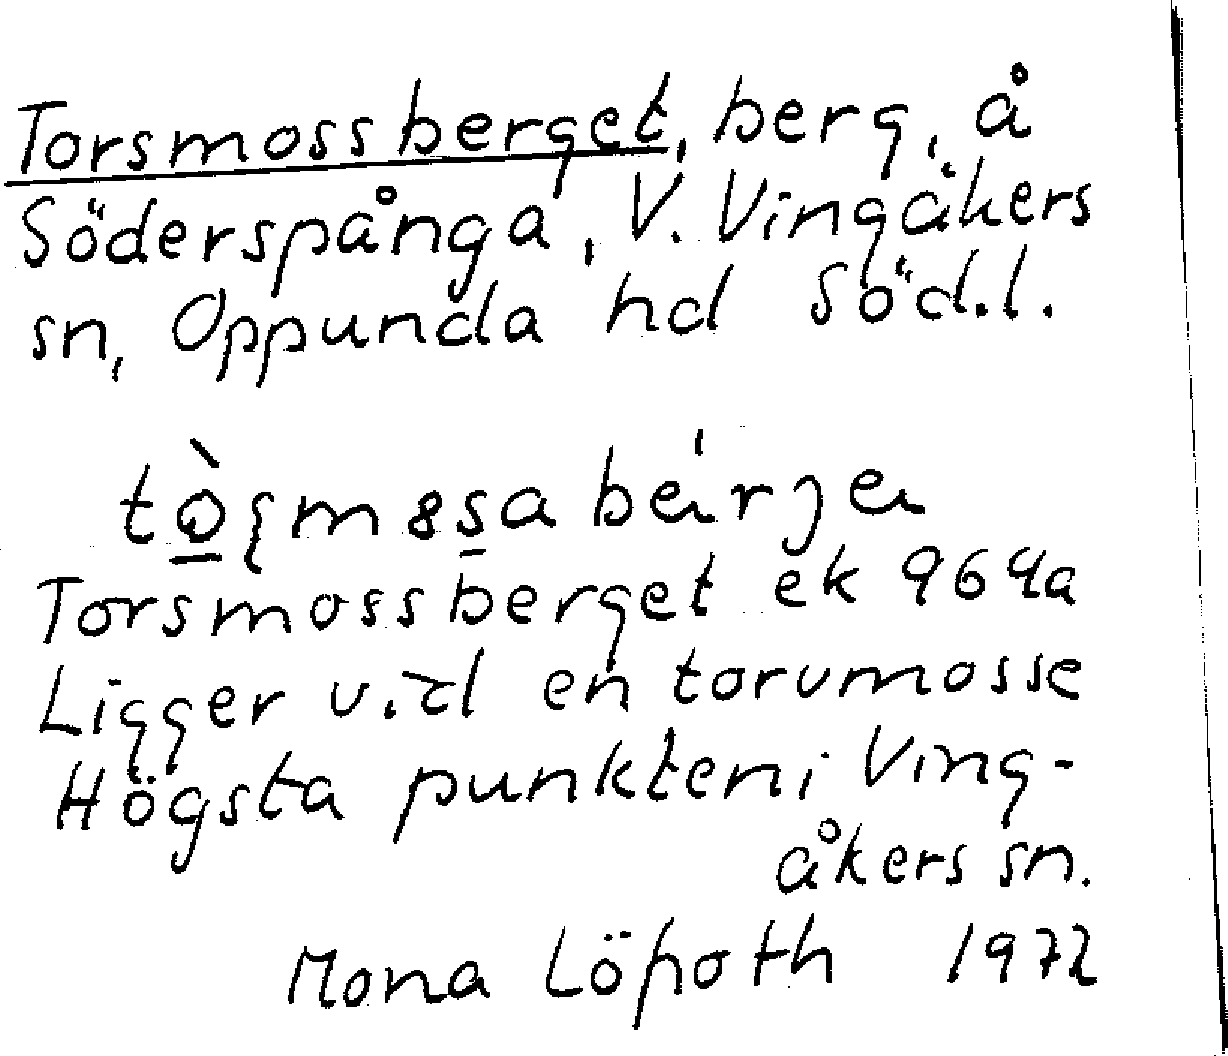 Torsmossberget, berg, å
Söderspånga, V. Vingåkers
sn, Oppunda hd Söd.l.
Torsmossberget ek 964a
Ligger vid en torvmosse
Högsta punkten i Ving-
åkers sn.
Mona 1972